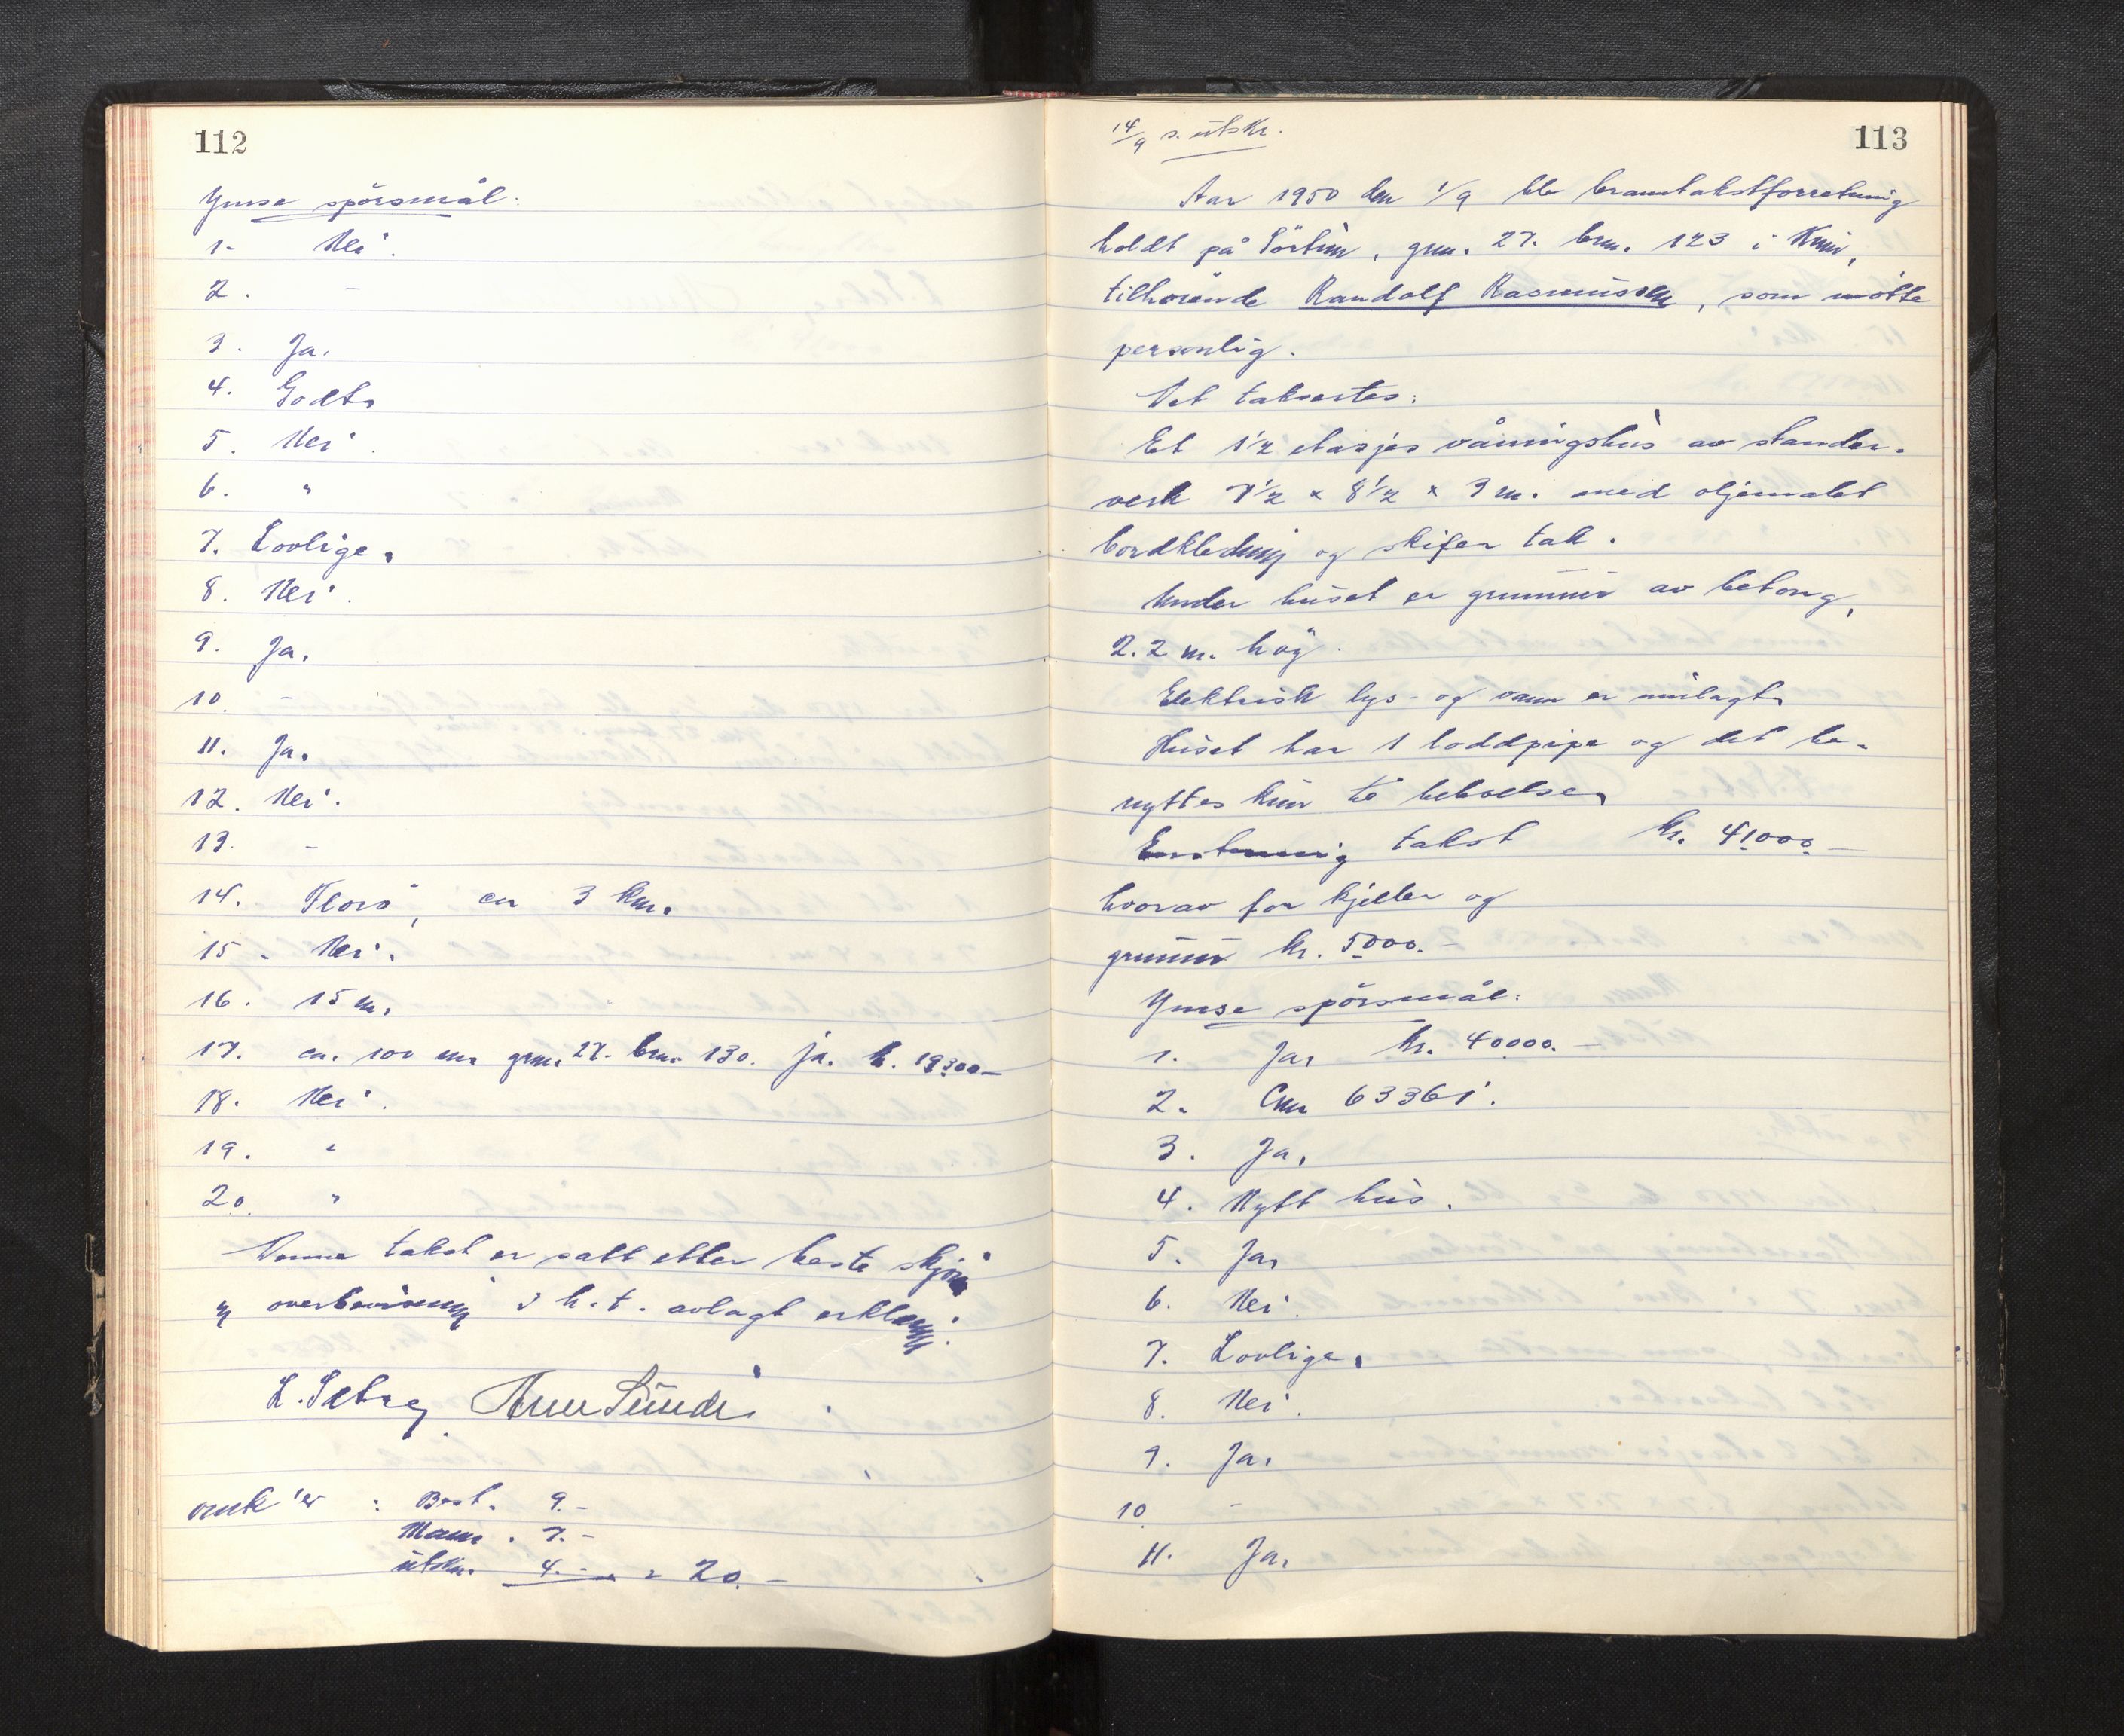 112
Ymse spörsmål:
1- Nei.
2. -
3. Ja.
4. Godt.
5. Nei.
6. "
7. Lovlige.
8. Nei.
9. Ja.
10. -
11. Ja.
12. Nei.
13. -
14. Florö, ca 3 km.
15. Nei.
16. 15 m.
17. ca. 100 m gnr. 27. bnr. 130. ja. k. 19300-
18. Nei.
19. "
20. "
Denne takst er satt etter beste skjön
og overbevisning i h.t. avlagt erklæring.
L. Sæbrey
omk'er : Best. 9.-
Mann. 7.-
utskr. 4.- = 20.-
14/9 s. utskr.
113
Aar 1950 den 1/9 ble branntakstforretning
holdt på, gnr. 27. bnr. 123 i Kinn,
tilhörende Randolf Rasmussen, som mötte
personlig.
Det taksertes:
Et 1 1/2 etasjes våningshus av stender-
verk 7 1/2 x 8 1/2 x 3 m. med oljemalet
bordkledning og skifer tak.
Under huset er grunnmur av betong,
2.2 m. hög.
Elektrisk lys- og vann er innlagt.
Huset har 1 loddpipe og det be-
nyttes kun til beboelse.
Enstemmig takst kr. 41000.-
hvorav for kjeller og
grunnmur kr. 5000.-
Ymse spörsmål:
1. Ja, kr. 40000.-
2. 63361.
3. Ja.
4. Nytt hus.
5. Ja.
6. Nei.
7. Lovlige.
8. Nei.
9. Ja.
10. -
11. Ja.